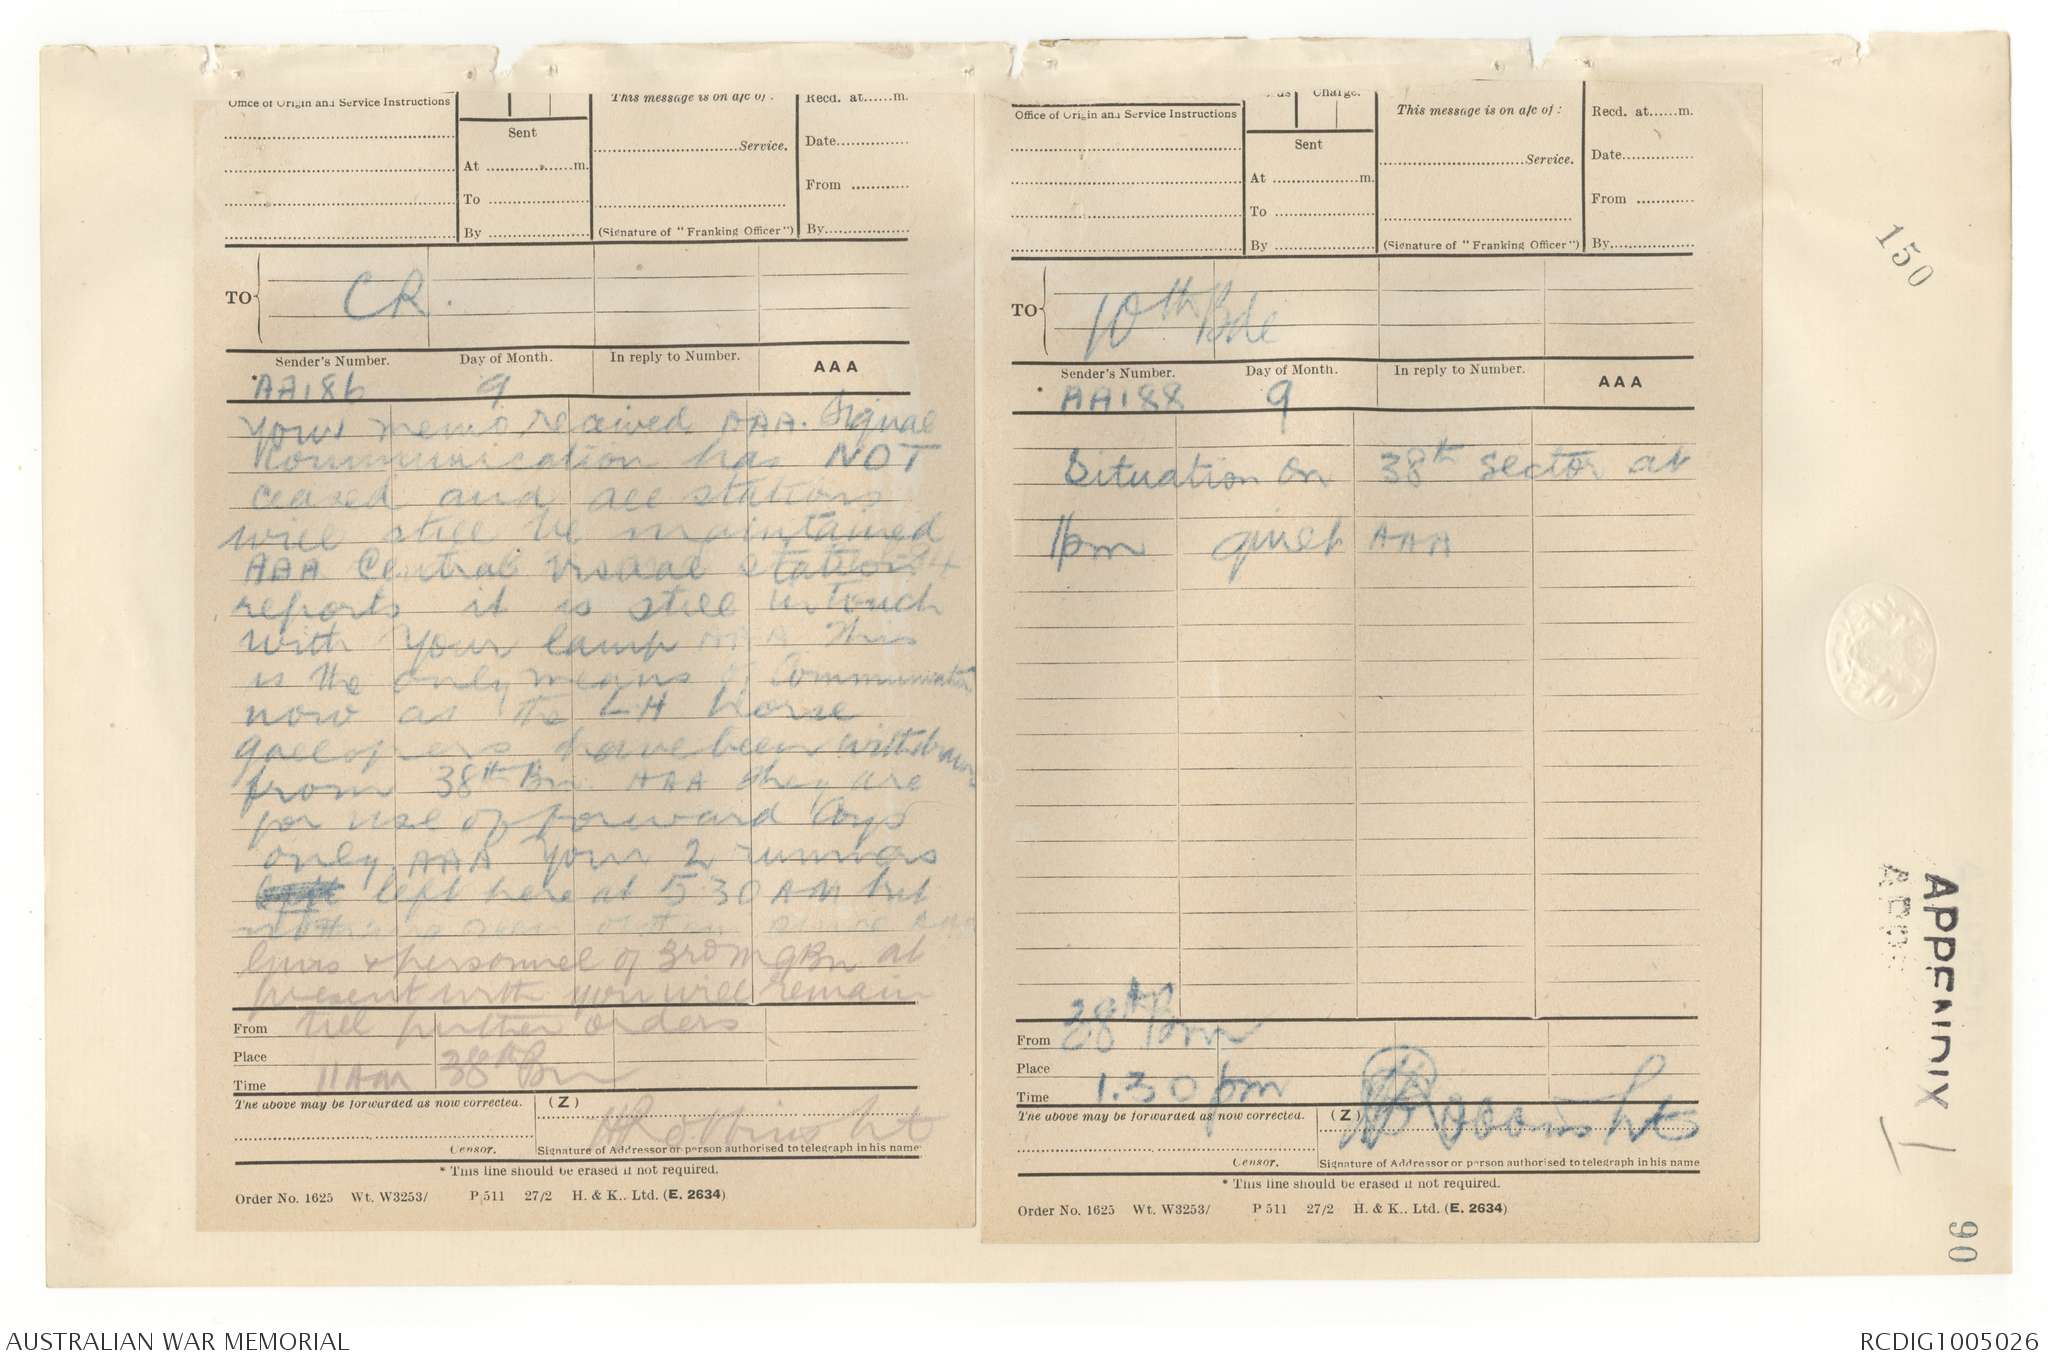 Office of Origin and Service Instructions
Sent
At ............ m.
To ............
By ............
This message is on a/c of :
............ Service.
(Signature of "Franking Officer")
Recd. at ...... m.
Date ............
From ............
By ............
TO
CR.
Sender's Number.
Day of Month.
In reply to Number.
AAA
* AA186
9
Your memo received AAA. Signal
Communication has NOT
ceased and all stations
will still be maintained
AAA Central visual station
reports it is still in touch
with your lamp AAA This
is the only means of Communication
now as the LH horse
gallopers have been withdrawn
from 38th Bn AAA They are
for use of forward Coys
only AAA Your 2 runners
left here at 5 30 AM but
seen
Guns & personnel of 3rd M G Bn at
present with you will remain
till further orders
From
Place
38th Bn
Time
11 AM
The above may be forwarded as now corrected.
(Z)
Censor.
Signature of Addressor or person authorised to telegraph in his name
* This line should be erased if not required.
Order No. 1625 Wt. W3253/ P 511 27/2 H. & K., Ltd. (E. 2634)
Charge.
Office of Origin and Service Instructions
Sent
At ............ m.
To ............
By ............
This message is on a/c of :
............ Service.
(Signature of "Franking Officer")
Recd. at ...... m.
Date ............
From ............
By ............
TO
10th Bde
Sender's Number.
Day of Month.
In reply to Number.
AAA
* AA188
9
Situation on 38th Sector at
1pm quiet AAA
From
38th Bn
Place
Time
1.30 pm
The above may be forwarded as now corrected.
(Z)
Censor.
Signature of Addressor or person authorised to telegraph in his name
* This line should be erased if not required.
Order No. 1625 Wt. W3253/ P 511 27/2 H. & K.. Ltd. (E. 2634)
150
APPENDIX 1
90
AUSTRALIAN WAR MEMORIAL
RCDIG1005026